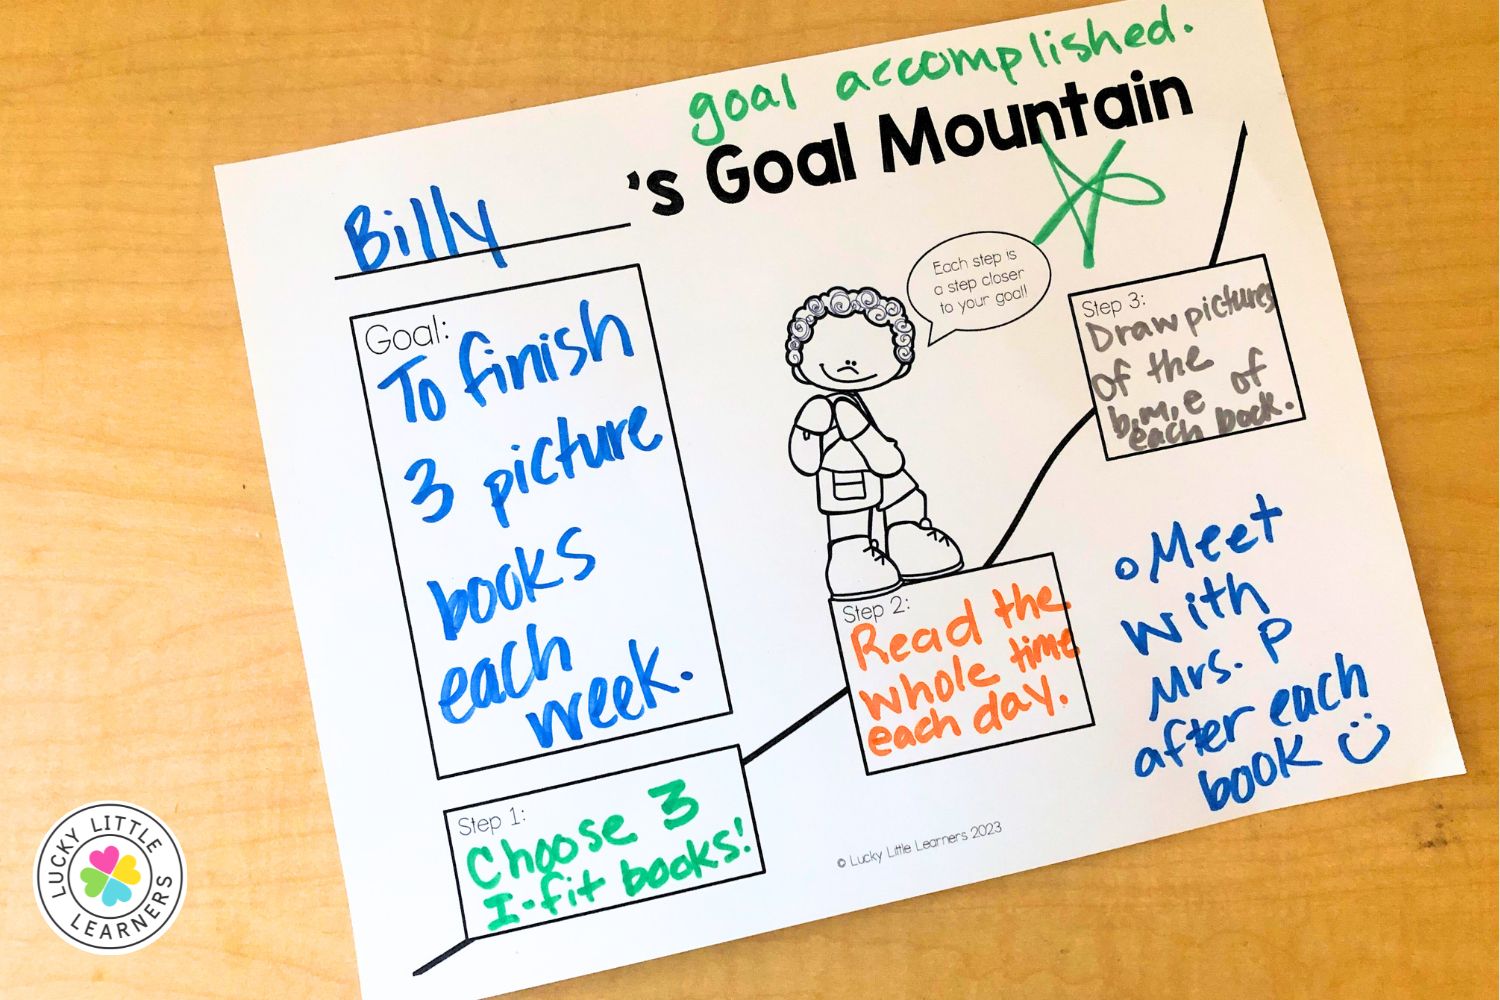 goal accomplished.
Billy's Goal Mountain
Each step is
a step closer
to your goal!
Goal:
To finish
3 picture
books
each
week.
Step 1:
Choose 3
I-fit books!
Step 2:
Read the
whole time
each day.
Step 3:
Draw pictures
of the
b,m,e of
each book.
Meet
with
Mrs. P
after each
book
© Lucky Little Learners 2023
LUCKY LITTLE
LEARNERS